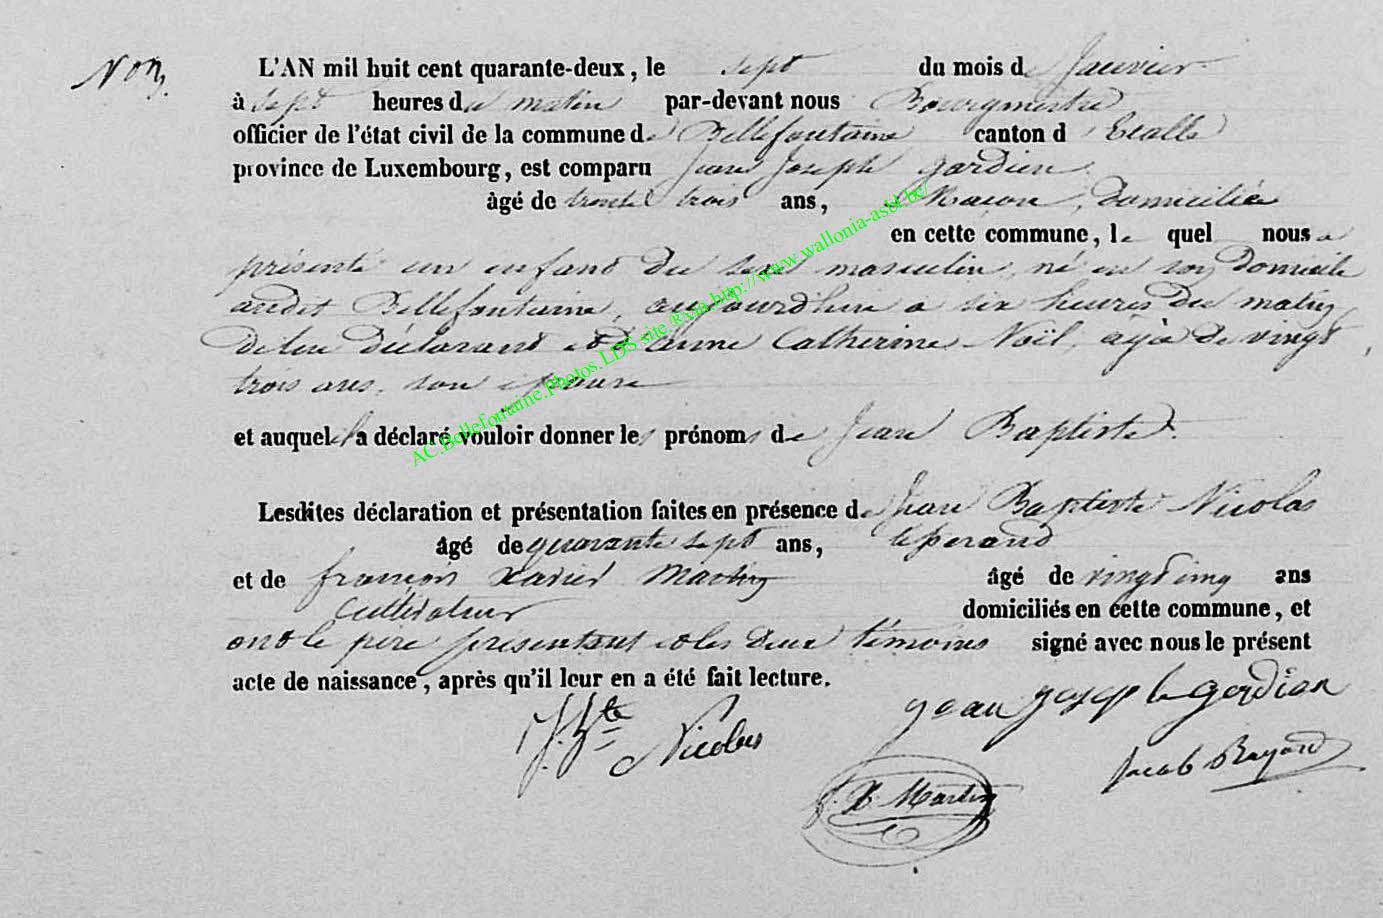 Non
L'AN mil huit cent quarante-deux, le sept du mois de Janvier
à sept heures du matin par-devant nous Bourgmestre
officier de l'état civil de la commune de Bellefontaine canton d'Etalle
province de Luxembourg, est comparu Jean Joseph Gordien
âgé de trente trois ans, Maçon, domicilié
en cette commune, le quel nous a
présenté un enfant du sexe masculin, né en son domicile
audit Bellefontaine, aujourdhui a six heures du matin
de lui déclarant et d'anne Catherine Noël agée de vingt
trois ans, son épouse
et auquel il a déclaré vouloir donner les prénoms de Jean Baptiste.
Lesdites déclaration et présentation faites en présence de Jean Baptiste Nicolas
âgé de quarante sept ans,
et de françois Xavier Martin âgé de vingt cinq ans
Cultivateur domiciliés en cette commune, et
ont le pere présentant et les deux témoins signé avec nous le présent
acte de naissance, après qu'il leur en a été fait lecture.
J. Bte Nicolas
jean joseph gordien
f. X. Martin
Jacob Bayard
AC.Bellefontaine.Photos.LDS site ®via http://www.wallonia-asbl.be/